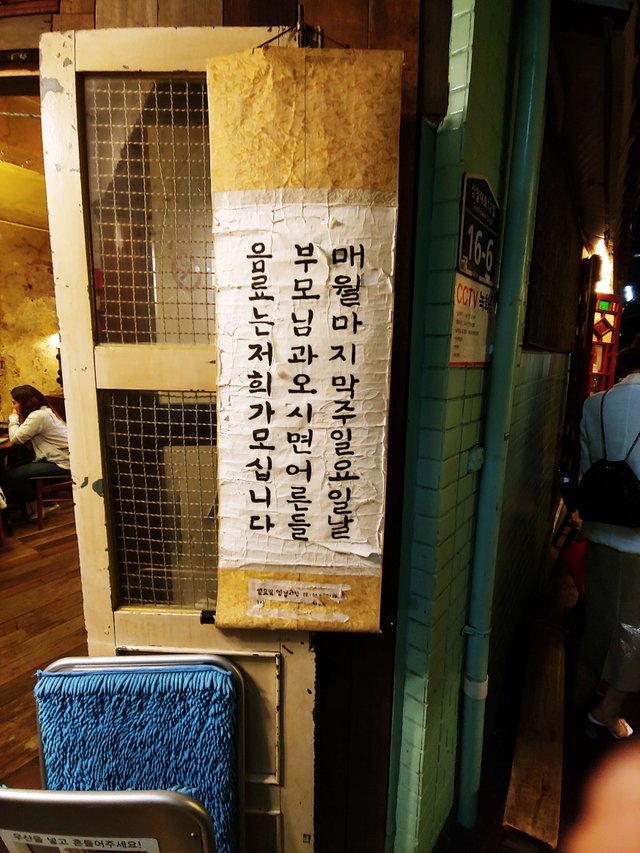 매월마지막주일요일날
부모님과오시면어른들
음료는저희가모십니다
16-6
CCTV
우산을 넣고 흔들어주세요!